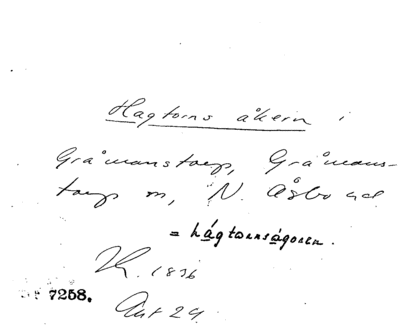 Hagtorns åkern i
Gråmanstorp, Gråmans-
torp sn, N. Åsbo hd
= hágtornságoren.
1836
7258.
Akt 29